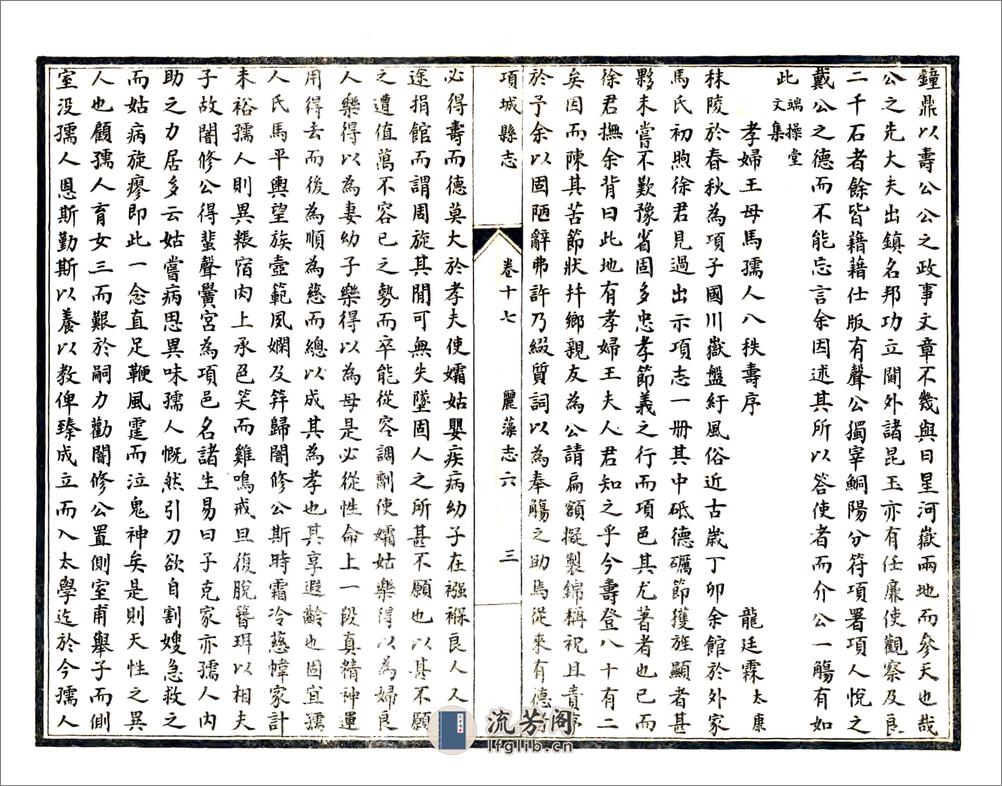 鐘鼎以壽公公之政事文章不幾與日星河嶽兩地而參天也哉
公之先大夫出鎮名邦功立閫外諸昆玉亦有任廉使觀察及良
二千石者餘皆藉藉仕版有聲公獨宰鮦陽分符項署項人悅之
戴公之德而不能忘言余因述其所以答使者而介公一觴有如
此 端操堂文集
孝婦王母馬孺人八秩壽序 龍廷霖 太康
秣陵於春秋為項子國川嶽盤紆風俗近古歲丁卯余館於外家
馬氏初煦徐君見過出示項志一册其中砥德礪節獲旌顯者甚
夥未嘗不歎豫省固多忠孝節義之行而項邑其尤著者也已而
徐君撫余背曰此地有孝婦王夫人君知之乎今壽登八十有二
矣因而陳其苦節狀幷鄉親友為公請扁額擬製錦稱祝且責序
於予余以固陋辭弗許乃綴質詞以為奉觴之助焉從來有德
項城縣志 卷十七 麗藻志六 三
必得壽而德莫大於孝夫使孀姑嬰疾病幼子在襁褓良人又中
途捐館而謂周旋其間可無失墜固人之所甚不願也以甚不願
之遭值萬不容已之勢而卒能從容調劑使孀姑樂得以為婦良
人樂得以為妻幼子樂得以為母是必從性命上一段真精神運
用得去而後為順為慈而總以成其為孝也其享遐齡也固宜孺
人氏馬平輿望族壺範夙嫻及笄歸闇修公斯時霜冷慈幃家計
未裕孺人則異粻宿肉上承色笑而雞鳴戒旦復脫簪珥以相夫
子故闇修公得蜚聲黌宮為項邑名諸生易曰子克家亦孺人內
助之力居多云姑嘗病思異味孺人慨然引刀欲自割嫂急救之
而姑病旋瘳即此一念直足鞭風霆而泣鬼神矣是則天性之異
人也顧孺人育女三而艱於嗣力勸闇修公置側室甫舉子而側
室没孺人恩斯勤斯以養以教俾臻成立而入太學迄於今孺人
流芳阁
lfglib.cn